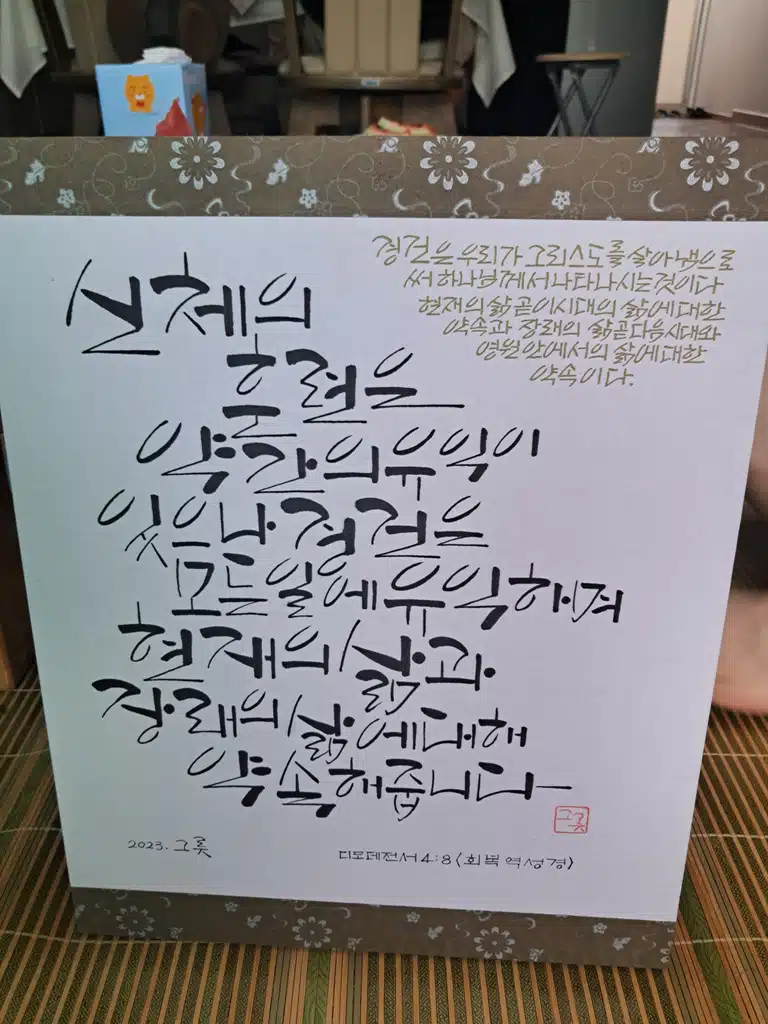 경건은 우리가 그리스도를 살아냄으로
써 하나님께서 나타나시는 것이다
현재의 삶 곧 이 시대의 삶에 대한
약속과 장래의 삶 곧 다음 시대와
영원 안에서의 삶에 대한
약속이다.
신체의
훈련은
약간의 유익이
있으나 경건은
모든 일에 유익하며
현재의 삶과
장래의 삶에 대해
약속해 줍니다
그릇
2023. 그릇
디모데전서 4:8 (회복역 성경)